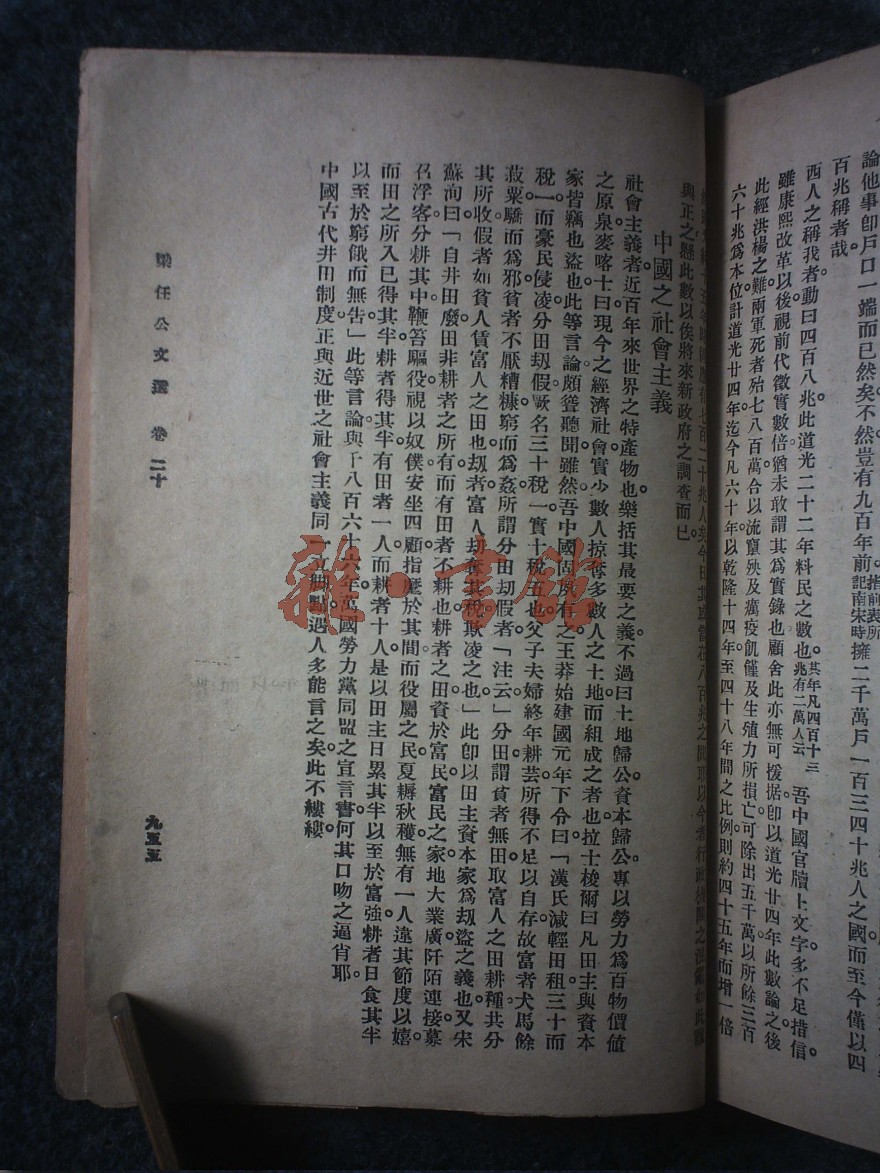 論他事卽戶口一端而已然矣不然豈有九百年前記南宋時擁二千萬戶一百三四十兆人之國而至今僅以四
百兆稱者哉
西人之稱我者動曰四百八兆此道光二十二年料民之數也其年凡四百十三兆有二萬人云吾中國官牘上文字多不足措信
雖康熙改革以後視前代徵實數倍猶未敢謂其爲實錄也顧舍此亦無可援据卽以道光廿四年此數論之後
此經洪楊之難兩軍死者殆七八百萬合以流竄殃及癘疫飢饉及生殖力所損亡可除出五千萬以所餘三百
六十兆爲本位計道光廿四年迄今凡六十年以乾隆十四年至四十八年間之比例則約四十五年而增一倍
七百二十兆人矣今日其
與正之懸此數以俟將來新政府之調查而已
中國之社會主義
社會主義者近百年來世界之特產物也櫽括其最要之義不過曰土地歸公資本歸公專以勞力爲百物價値
之原泉麥喀士曰現今之經濟社會實少數人掠奪多數人之土地而組成之者也拉士梭爾曰凡田主與資本
家皆竊也盜也此等言論頗聳聽聞雖然吾中國固夙有之王莽始建國元年下令曰「漢氏減輕田租三十而
稅一而豪民侵凌分田刼假厥名三十稅一實十稅五也父子夫婦終年耕芸所得不足以自存故富者犬馬餘
菽粟驕而爲邪貧者不厭糟糠窮而爲姦所謂分田刼假者「注云」分田謂貧者無田取富人之田耕種共分
其所收假者如貧人賃富人之田也刼者富人刼奪其稅欺凌之也」此卽以田主資本家爲刼盜之義也又宋
蘇洵曰「自井田廢田非耕者之所有而有田者不耕也耕者之田資於富民富民之家地大業廣阡陌連接募
召浮客分耕其中鞭笞驅役視以奴僕安坐四顧指麾於其間而役屬之民夏耨秋穫無有一人違其節度以嬉
而田之所入已得其半耕者得其半有田者一人而耕者十人是以田主日累其半以至於富强耕者日食其半
以至於窮餓而無告」此等言論與千八百六十六年萬國勞力黨同盟之宣言書何其口吻之逼肖耶
中國古代井田制度正與近世之社會主義同一立腳點遇人多能言之矣此不縷縷
梁任公文選 卷二十
九五五
雜·書館